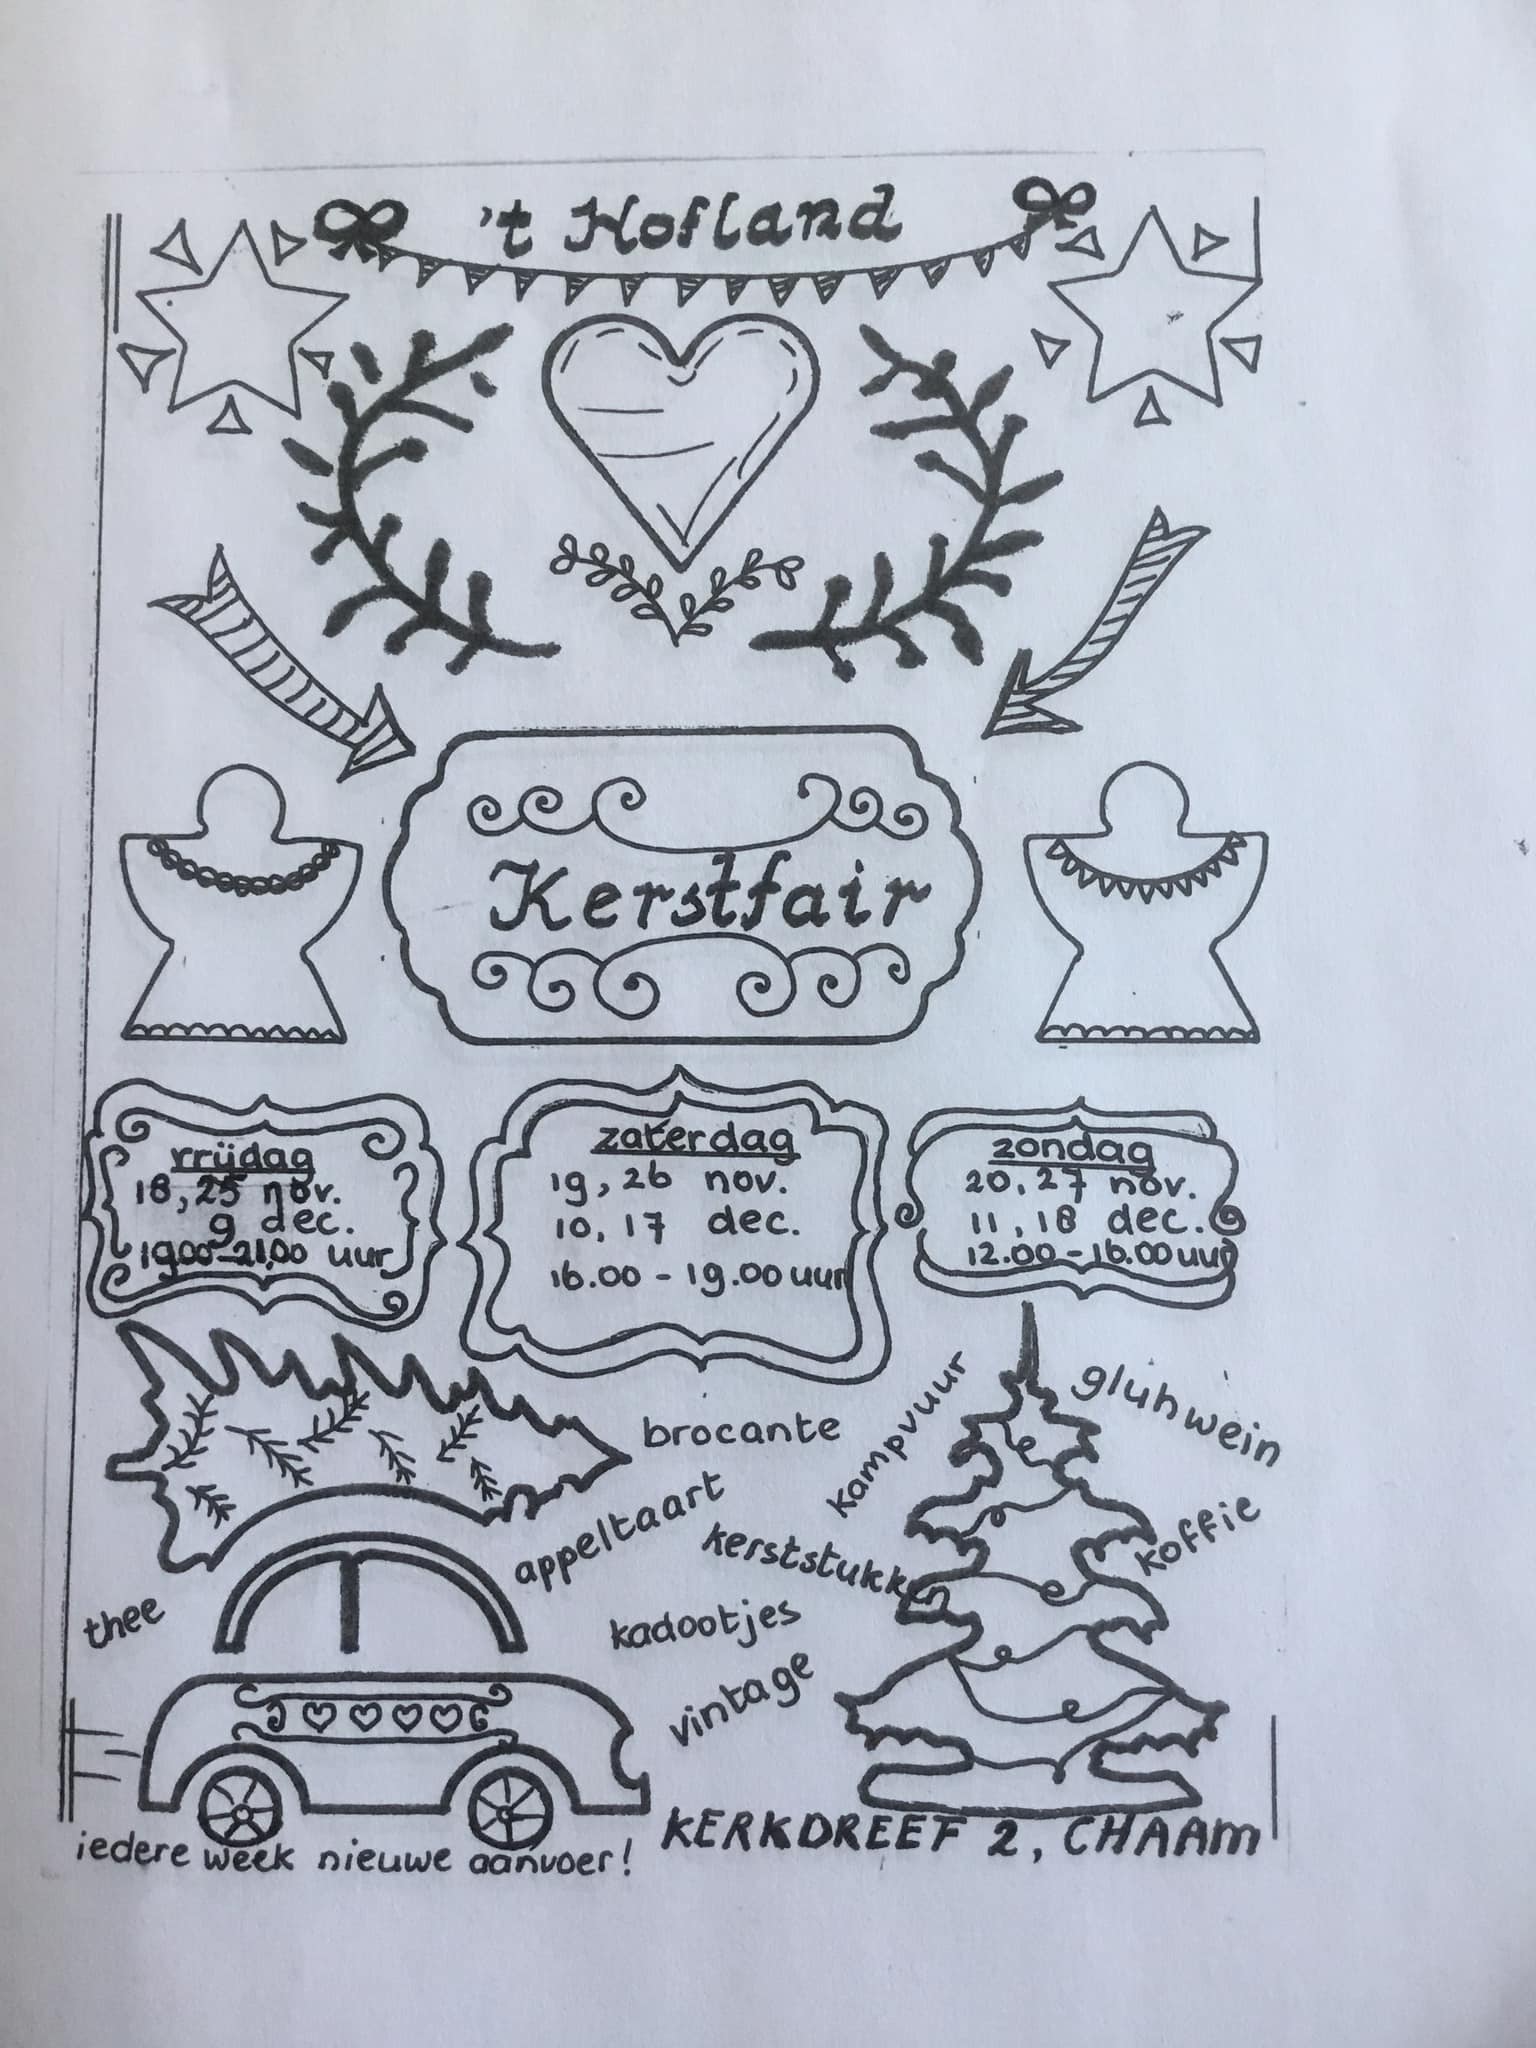 't Hofland
Kerstfair
vrijdag
18, 25 nov.
9 dec.
19.00-21.00 uur
zaterdag
19, 26 nov.
10, 17 dec.
16.00 - 19.00 uur
zondag
20, 27 nov.
11, 18 dec.
12.00 - 16.00 uur
brocante
kampvuur
gluhwein
appeltaart
kerststukken
koffie
thee
kadootjes
vintage
iedere week nieuwe aanvoer!
KERKDREEF 2, CHAAM